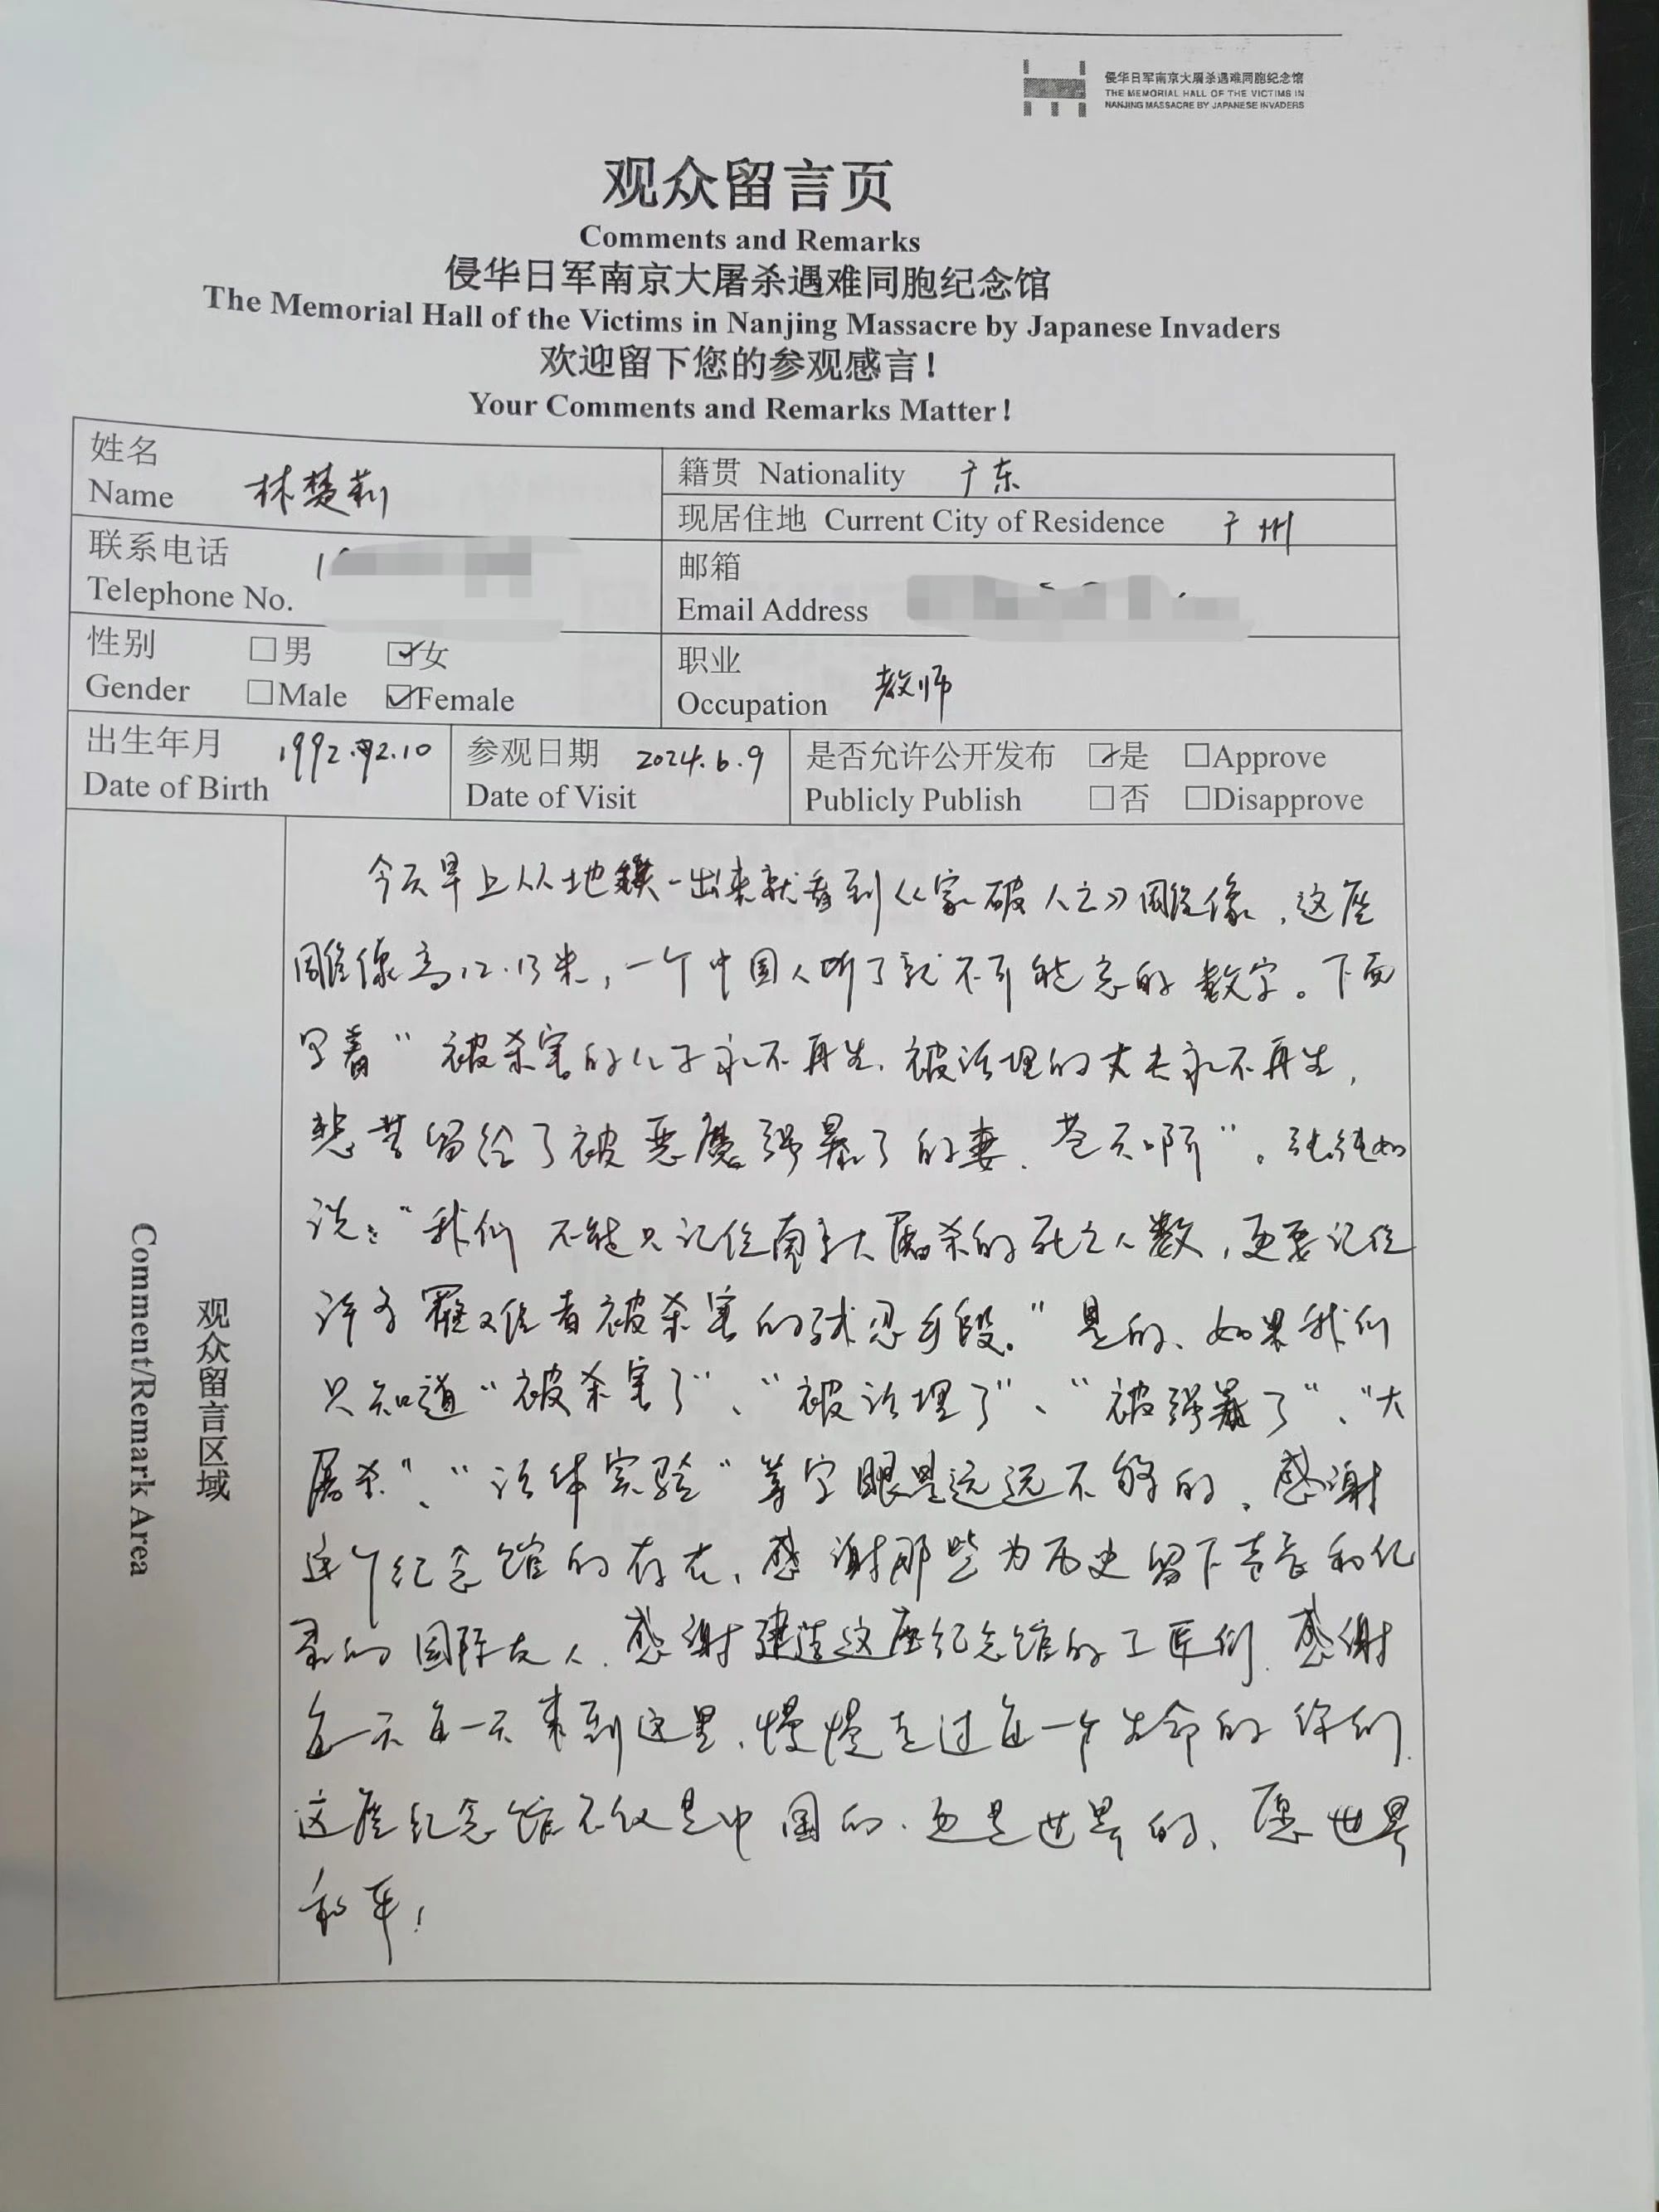 侵华日军南京大屠杀遇难同胞纪念馆
THE MEMORIAL HALL OF THE VICTIMS IN
NANJING MASSACRE BY JAPANESE INVADERS
观众留言页
Comments and Remarks
侵华日军南京大屠杀遇难同胞纪念馆
The Memorial Hall of the Victims in Nanjing Massacre by Japanese Invaders
欢迎留下您的参观感言!
Your Comments and Remarks Matter!
姓名
Name 林楚莉
籍贯 Nationality 广东
现居住地 Current City of Residence 广州
联系电话
Telephone No.
邮箱
Email Address
性别 □男 ☑女
Gender □Male ☑Female
职业
Occupation 教师
出生年月
Date of Birth 1992.2.10
参观日期 2024.6.9
Date of Visit
是否允许公开发布 ☑是 □Approve
Publicly Publish □否 □Disapprove
观众留言区域
Comment/Remark Area
今天早上从地铁一出来就看到《家破人亡》雕像,这座
雕像高12.13米,一个中国人听了就不可能忘的数字。下面
写着“被杀害的儿子永不再生,被活埋的丈夫永不再生,
悲苦留给了被恶魔强暴了的妻,苍天啊”。张纯如
说:“我们不能只记住南京大屠杀的死亡人数,更要记住
许多罹难者被杀害的残忍手段。”是的,如果我们
只知道“被杀害了”、“被活埋了”、“被强暴了”、“大
屠杀”、“活体实验”等字眼是远远不够的,感谢
这个纪念馆的存在,感谢那些为历史留下声音和纪
录的国际友人,感谢建造这座纪念馆的工匠们,感谢
每一天每一天来到这里,慢慢走过每一个生命的你们,
这座纪念馆不仅是中国的,更是世界的,愿世界
和平!